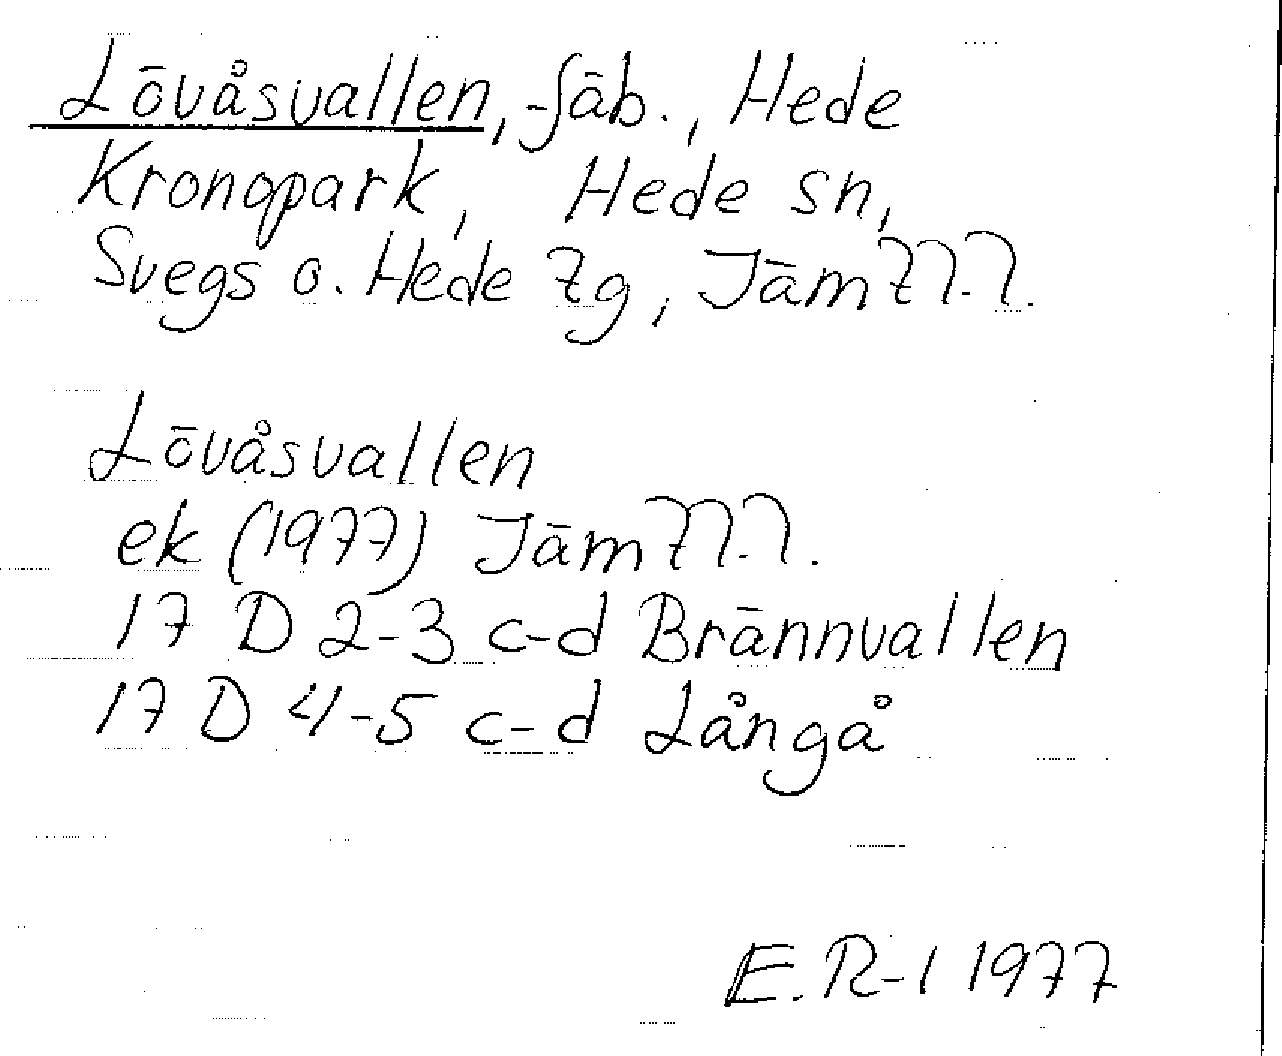 Lövåsvallen, fäb., Hede
Kronopark, Hede sn,
Svegs o. Hede tg, Jämtl.
Lövåsvallen
ek (1977) Jämtl.
17 D 2-3 c-d Brännvallen
17 D 4-5 c-d Långå
E.R-l 1977